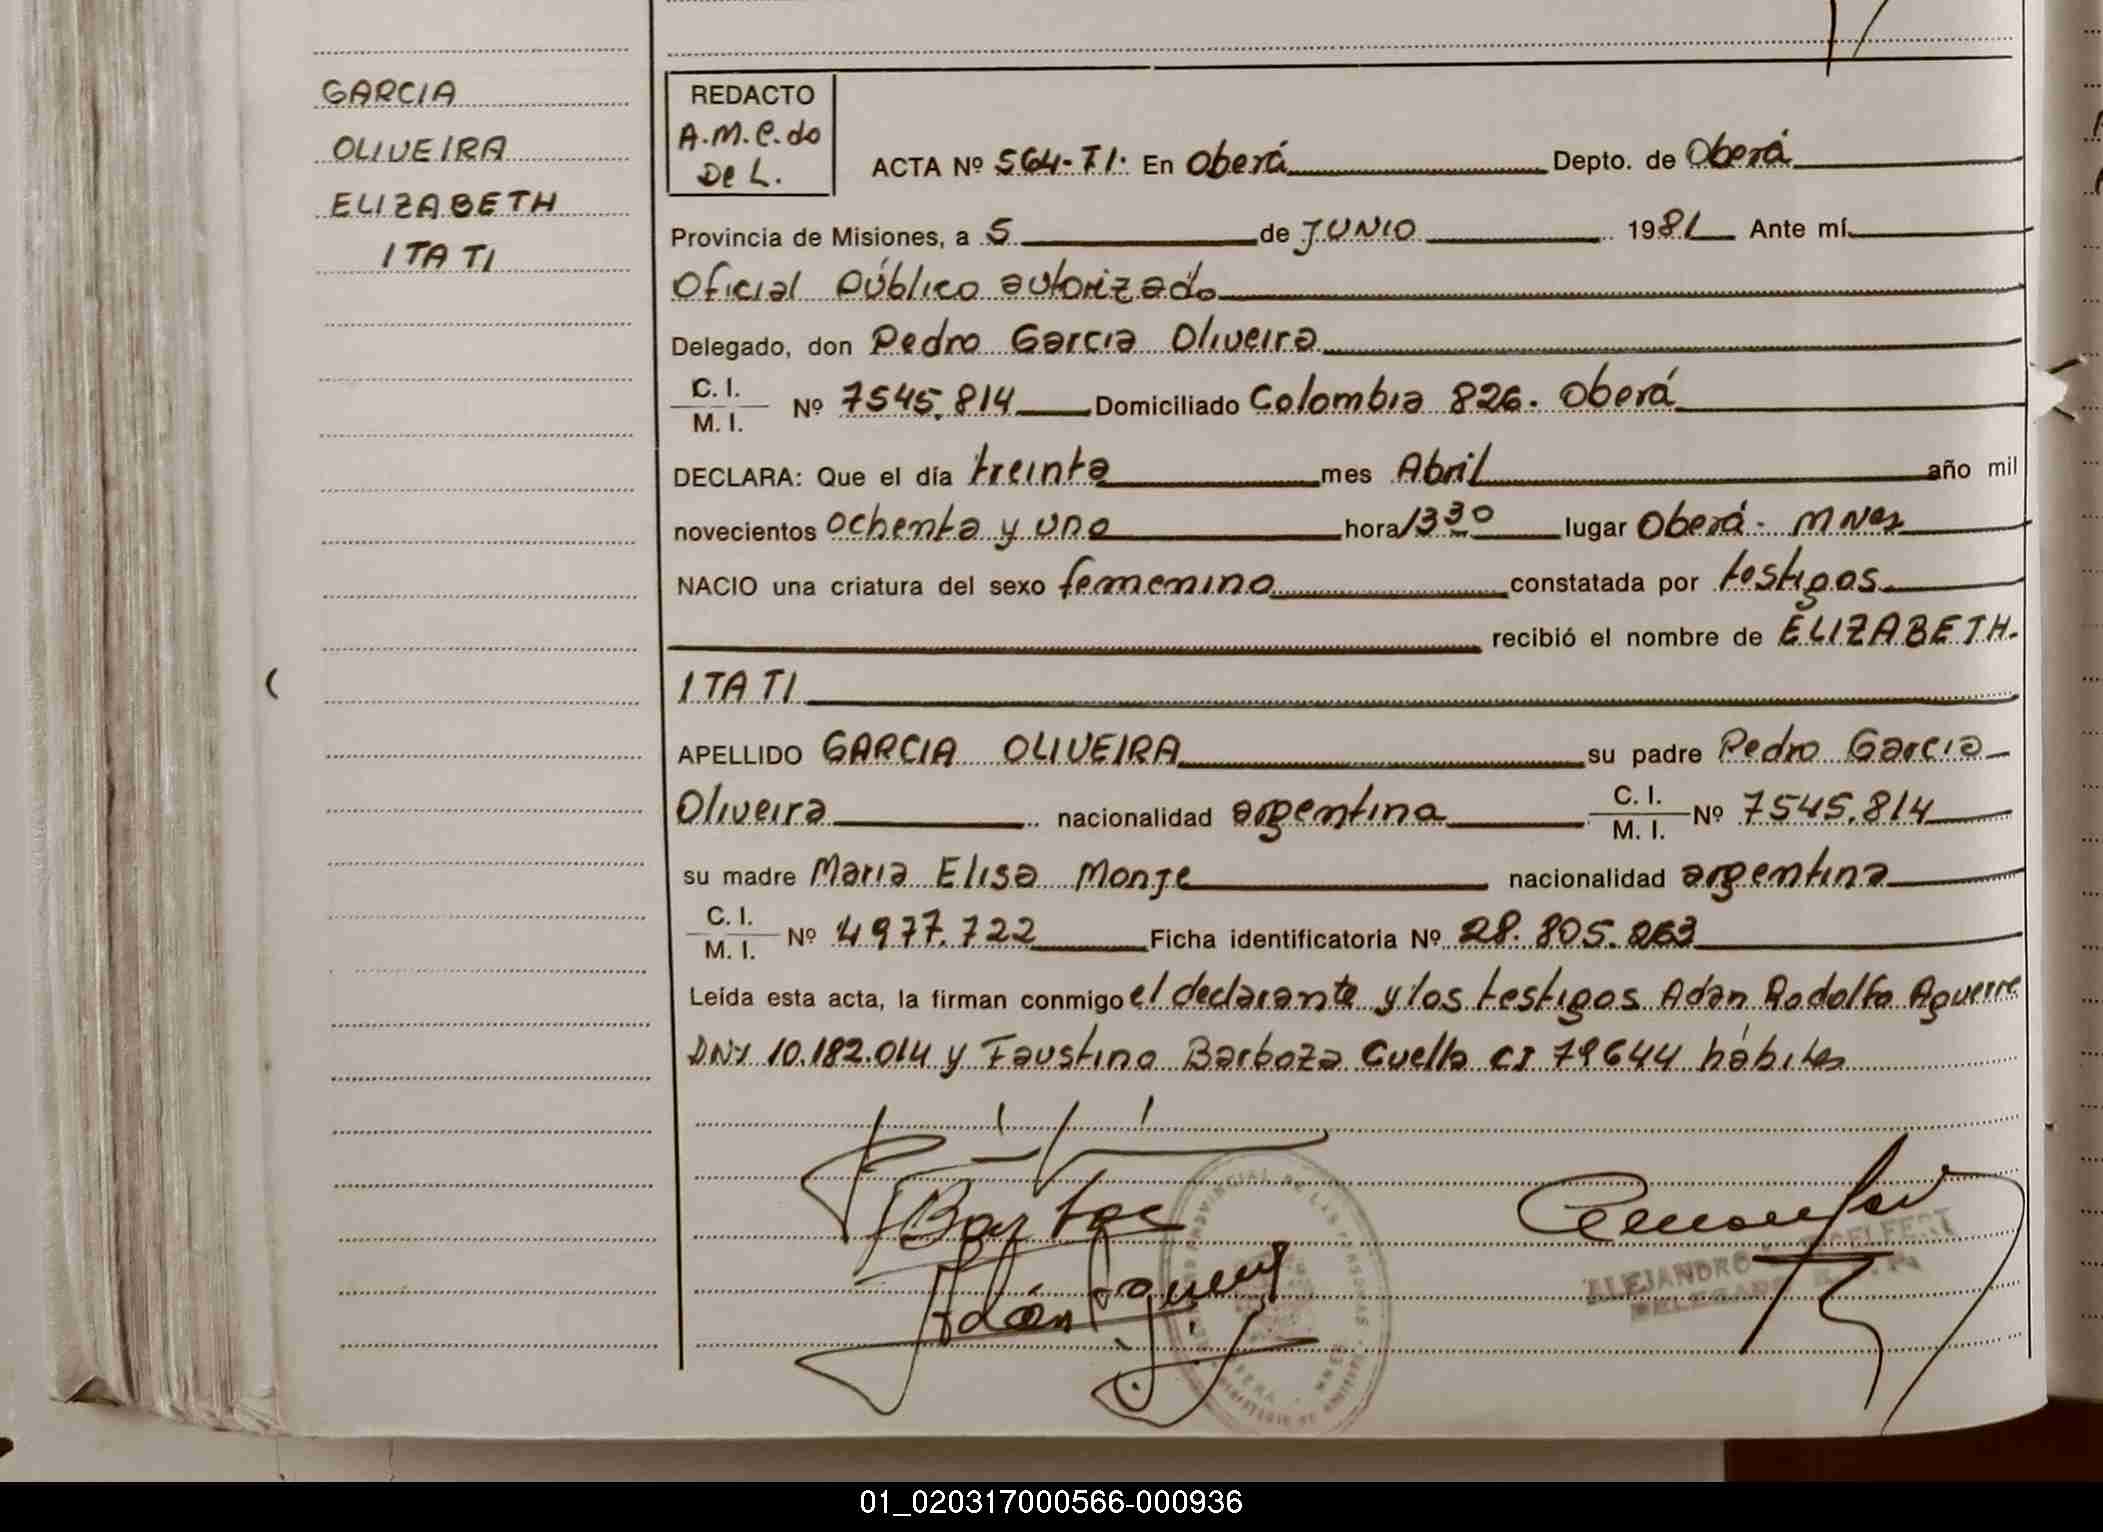 GARCIA
OLIVEIRA
ELIZABETH
ITATI
REDACTO
A.M.C.do
De L.
ACTA Nº 564-TI. En Oberá Depto. de Oberá
Provincia de Misiones, a 5 de JUNIO 1981 Ante mí
Oficial Público autorizado
Delegado, don Pedro Garcia Oliveira
C. I.
M. I. Nº 7545.814 Domiciliado Colombia 826. Oberá
DECLARA: Que el día treinta mes Abril año mil
novecientos ochenta y uno hora 13 30 lugar Oberá - Mnes
NACIO una criatura del sexo femenino constatada por testigos
recibió el nombre de ELIZABETH.
ITATI
APELLIDO GARCIA OLIVEIRA su padre Pedro Garcia
Oliveira nacionalidad argentina C. I. M. I. Nº 7545.814
su madre Maria Elisa Monje nacionalidad argentina
C. I.
M. I. Nº 4977.722 Ficha identificatoria Nº 28.805.263
Leída esta acta, la firman conmigo el declarante y los testigos Adan Rodolfo Aguerre
DNI 10.182.014 y Faustino Barboza Cuella CI 79644 hábiles
Adán
ALEJANDRO
DELEGADO
01_020317000566-000936